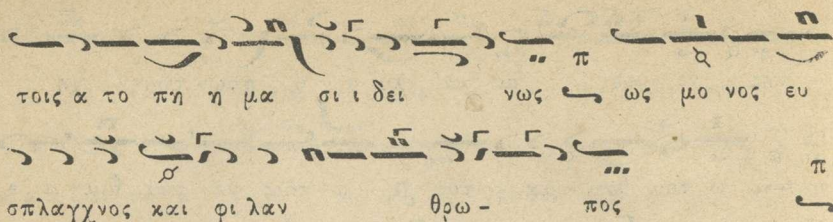 π
τοις α το πη η μα σι ι δει νως ως μο νος ευ
π
σπλαγχνος και φι λαν θρω - πος